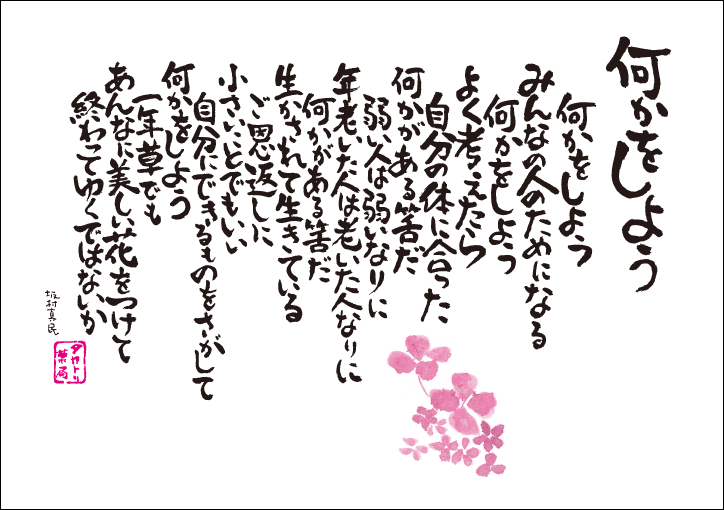 何かをしよう
何かをしよう
みんなの人のためになる
何かをしよう
よく考えたら
自分の体に合った
何かがある筈だ
弱い人は弱いなりに
年老いた人は老いた人なりに
何かがある筈だ
生かされて生きている
ご恩返しに
小さいことでもいい
自分にできるものをさがして
何かをしよう
一年草でも
あんなに美しい花をつけて
終わってゆくではないか
坂村真民
タカトリ
薬局